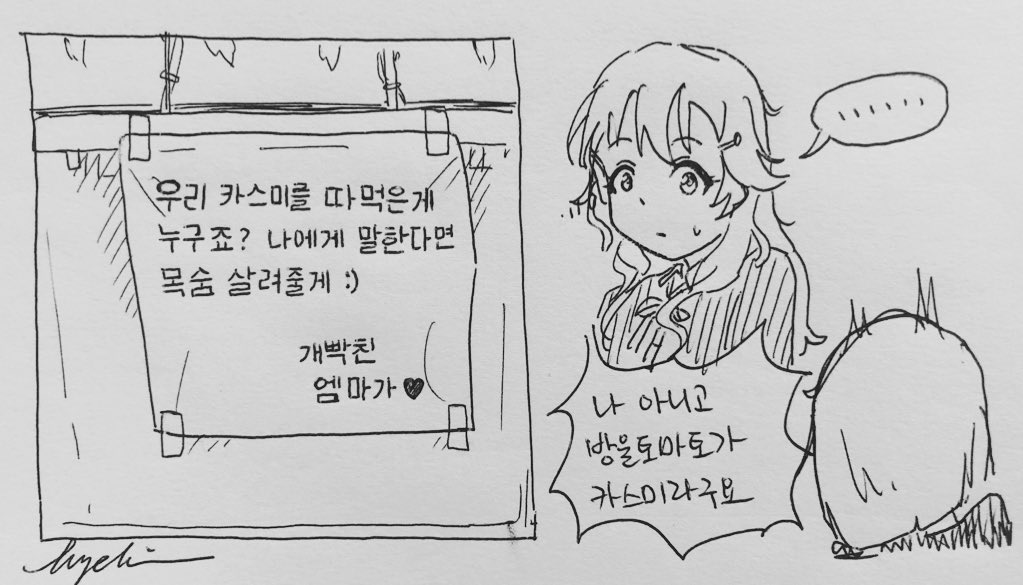 우리 카스미를 따먹은게
누구죠? 나에게 말한다면
목숨 살려줄게 :)
개빡친
엠마가 ♥
......
나 아니고
방울토마토가
카스미라구요
hyeli